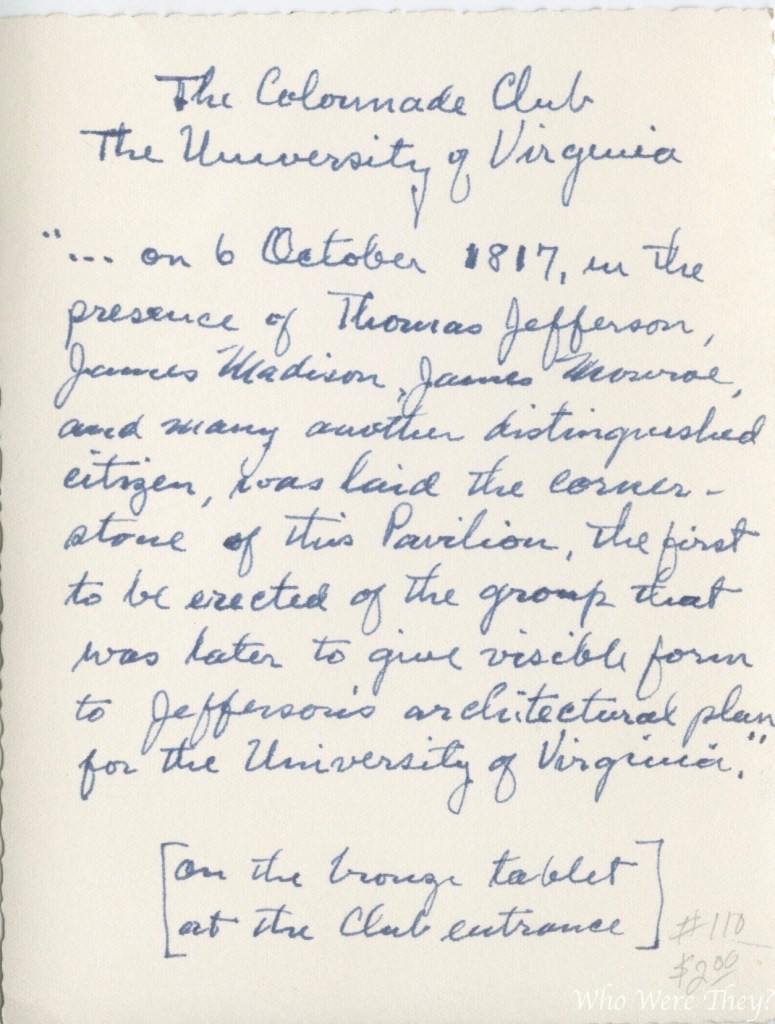 The Colonnade Club
The University of Virginia
"... on 6 October 1817, in the
presence of Thomas Jefferson,
James Madison, James Monroe,
and many another distinguished
citizen, was laid the corner-
stone of this Pavilion, the first
to be erected of the group that
was later to give visible form
to Jefferson's architectural plan
for the University of Virginia."
[on the bronze tablet
at the Club entrance]
#110
$2.00
Who Were They?